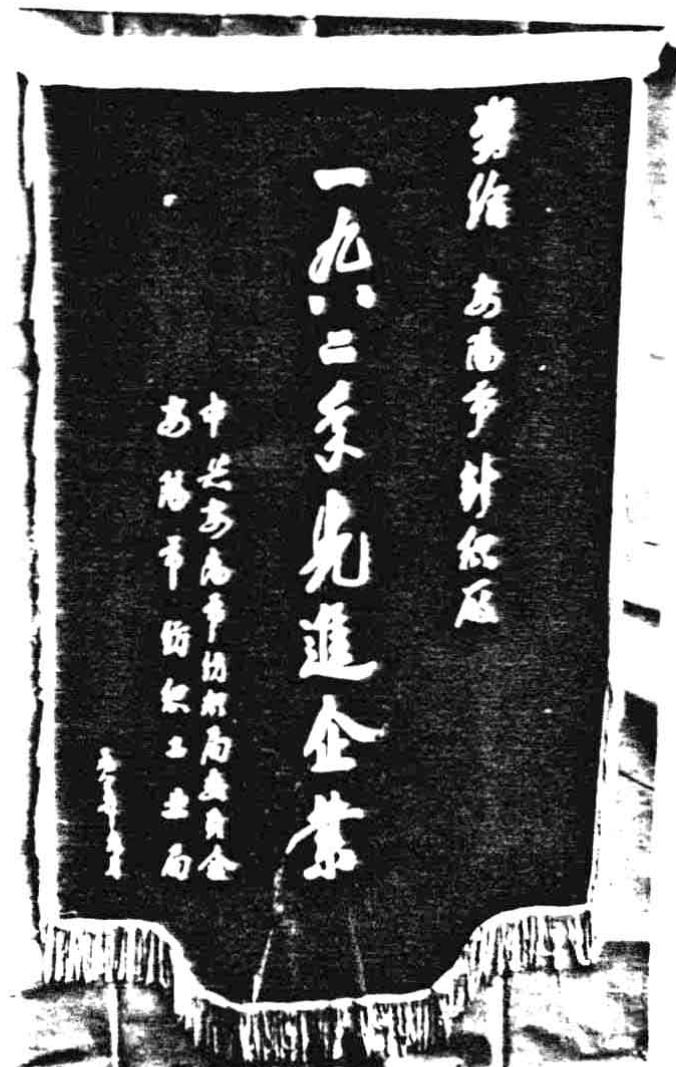 奖给 安阳市针织厂
一九八二年先進企業
中共安阳市纺织局委員会
安陽市纺织工业局